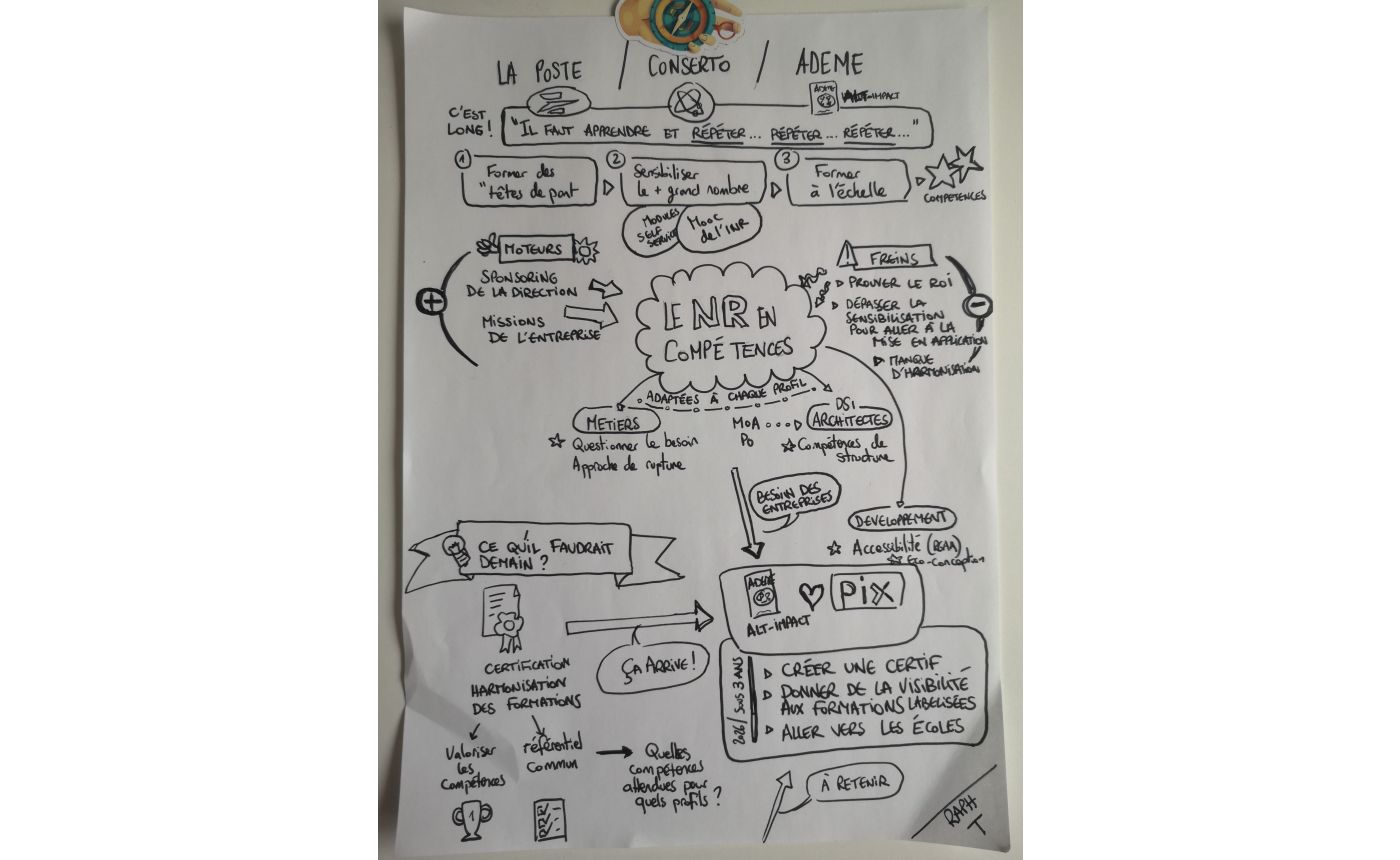 LA POSTE / CONSERTO / ADEME
ADEME
ALT-IMPACT
C'EST LONG !
"IL FAUT APPRENDRE ET RÉPÉTER... RÉPÉTER... RÉPÉTER..."
1
Former des
"têtes de pont
2
Sensibiliser
le + grand nombre
3
Former
à l'échelle
COMPÉTENCES
MODULES
SELF
SERVICE
MOOC
de l'INR
MOTEURS
+
SPONSORING
DE LA DIRECTION
MISSIONS
DE L'ENTREPRISE
LE NR EN
COMPÉTENCES
FREINS
-
PROUVER LE ROI
DÉPASSER LA
SENSIBILISATION
POUR ALLER À LA
MISE EN APPLICATION
MANQUE
D'HARMONISATION
ADAPTÉES À CHAQUE PROFIL
METIERS
Questionner le besoin
Approche de rupture
MOA
PO
DSI
ARCHITECTES
Compétences de
structure
BESOIN DES
ENTREPRISES
DEVELOPPEMENT
Accessibilité (RGAA)
Eco-conception
CE QU'IL FAUDRAIT
DEMAIN ?
ADEME
ALT-IMPACT
pix
ÇA ARRIVE !
CERTIFICATION
HARMONISATION
DES FORMATIONS
2026/ SOUS 3 ANS
CRÉER UNE CERTIF
DONNER DE LA VISIBILITÉ
AUX FORMATIONS LABELISÉES
ALLER VERS LES ÉCOLES
Valoriser
les
compétences
1
référentiel
commun
Quelles
compétences
attendues pour
quels profils ?
À RETENIR
RAPH
T